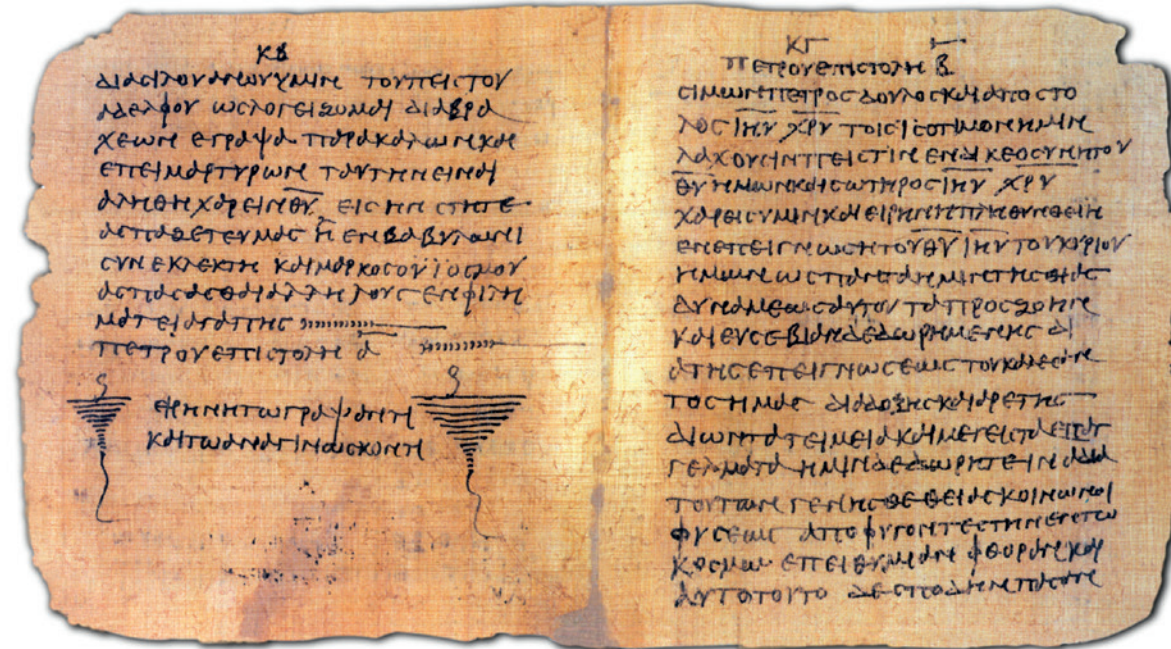 ΚΒ
ΔΙΑ ϹΙΛΟΥΑΝΟΥ ΥΜΙΝ ΤΟΥ ΠΕΙϹΤΟΥ
ΑΔΕΛΦΟΥ ΩϹ ΛΟΓΕΙΖΟΜΑΙ ΔΙΑ ΒΡΑ
ΧΕΩΝ ΕΓΡΑΨΑ ΠΑΡΑΚΑΛΩΝ ΚΑΙ
ΕΠΕΙΜΑΡΤΥΡΩΝ ΤΑΥΤΗΝ ΕΙΝΑΙ
ΑΛΗΘΗ ΧΑΡΕΙΝ ΘΥ ΕΙϹ ΗΝ ϹΤΗΤΕ
ΑϹΠΑΖΕΤΕ ΥΜΑϹ Η ΕΝ ΒΑΒΥΛΩΝΙ
ϹΥΝΕΚΛΕΚΤΗ ΚΑΙ ΜΑΡΚΟϹ Ο ΥΙΟϹ ΜΟΥ
ΑϹΠΑϹΑϹΘΑΙ ΑΛΛΗΛΟΥϹ ΕΝ ΦΙΛΗ
ΜΑΤΕΙ ΑΓΑΠΗϹ
ΠΕΤΡΟΥ ΕΠΙϹΤΟΛΗ Α
ΕΙΡΗΝΗ ΤΩ ΓΡΑΨΑΝΤΙ
ΚΑΙ ΤΩ ΑΝΑΓΙΝΩϹΚΟΝΤΙ
ΚΓ
ΠΕΤΡΟΥ ΕΠΙϹΤΟΛΗ Β
ϹΙΜΩΝ ΠΕΤΡΟϹ ΔΟΥΛΟϹ ΚΑΙ ΑΠΟϹΤΟ
ΛΟϹ ΙΗΥ ΧΡΥ ΤΟΙϹ ΙϹΟΤΙΜΟΝ ΗΜΙΝ
ΛΑΧΟΥϹΙΝ ΠΕΙϹΤΙΝ ΕΝ ΔΙΚΕΟϹΥΝΗ ΤΟΥ
ΘΥ ΗΜΩΝ ΚΑΙ ϹΩΤΗΡΟϹ ΙΗΥ ΧΡΥ
ΧΑΡΕΙϹ ΥΜΙΝ ΚΑΙ ΕΙΡΗΝΗ ΠΛΗΘΥΝΘΕΙΗ
ΕΝ ΕΠΕΙΓΝΩϹΗ ΤΟΥ ΘΥ ΙΗΥ ΤΟΥ ΚΥΡΙΟΥ
ΗΜΩΝ ΩϹ ΠΑΝΤΑ ΗΜΙΝ ΤΗϹ ΘΙΑϹ
ΔΥΝΑΜΕΩϹ ΑΥΤΟΥ ΤΑ ΠΡΟϹ ΖΩΗΝ
ΚΑΙ ΕΥϹΕΒΙΑΝ ΔΕΔΩΡΗΜΕΝΗϹ ΔΙ
Α ΤΗϹ ΕΠΕΙΓΝΩϹΕΩϹ ΤΟΥ ΚΑΛΕϹΑΝ
ΤΟϹ ΗΜΑϹ ΔΙΑ ΔΟΞΗϹ ΚΑΙ ΑΡΕΤΗϹ
ΔΙ ΩΝ ΤΑ ΤΕΙΜΕΙΑ ΚΑΙ ΜΕΓΕΙϹΤΑ ΕΠΑΓ
ΓΕΛΜΑΤΑ ΗΜΙΝ ΔΕΔΩΡΗΤΕ ΙΝΑ ΔΙΑ
ΤΟΥΤΩΝ ΓΕΝΗϹΘΕ ΘΕΙΑϹ ΚΟΙΝΩΝΟΙ
ΦΥϹΕΩϹ ΑΠΟΦΥΓΟΝΤΕϹ ΤΗΝ ΕΝ ΤΩ
ΚΟϹΜΩ ΕΠΕΙΘΥΜΙΑΝ ΦΘΟΡΑΝ ΚΑΙ
ΑΥΤΟ ΤΟΥΤΟ ΔΕ ϹΠΟΔΗΝ ΠΑϹΑΝ